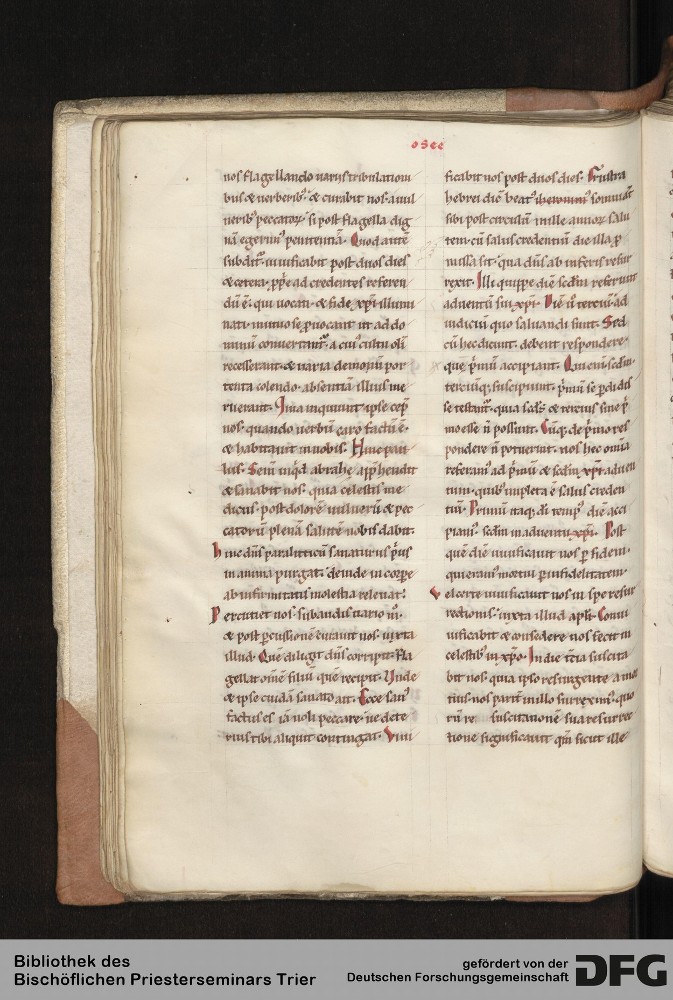 osee
nos flagellando uariis tribulationi
bus & uerberib⁹. & curabit nos. a uul
nerib⁹ peccatoꝝ. si post flagella dig
nā egerim⁹ penitentiā. Quod autē
subdit᷑. uiuificabit post duos dies
& cetera. ꝓp̄e ad credentes referen
dū ē. qui uocati. & fide xp̄i illumi
nati. mutuo se ꝓuocant ut ad do
minū conuertant᷑. a cui⁹ cultu oli
recesserant. & uaria demonū por
tenta colendo. absentiā illius me
ruerant. Ip̄a inquiunt ipse cep̄
nos. quando uerbū caro factū ē.
& habitauit in nobis. Hinc pau
lus. Semē inq̇d abrahę app̄hendit
& sanabit nos. quia celestis me
dicus. post dolorē uulnerū & pec
catorū plenā salutē nobis dabit.
hinc dn̄s paraliticū sanaturus p̄us
in anima purgat. deinde in corpe
ab infirmitatis molestia releuat.
Percutiet nos. subaudis uario m̊.
& post ꝑcussionē curauit nos. iuxta
illud. Quē diligit dn̄s corripit. fla
gellat om̄e filiū quē recipit. Unde
& ipse cuidā sanato ait. Ecce san⁹
factus es iā noli peccare. ne dete
rius tibi aliquit contingat. Viui
ficabit nos post duos dies. Frustra
hebrei dicē beat⁹ iheronim⁹ somniāt
sibi post circulū mille annoꝝ salu
tem. cū salus credentiū die illa ꝓ
missa sit. qua dn̄s ab inferis resur
rexit. Illi quippe diē sedm̄ referunt
aduentū sui xp̄i. Diē ů terciū. ad
iudiciū quo saluandi sunt. Sed
cū hec dicunt. debent respondere.
que p̄mū accipiant. Qui eni sedm̄.
terciūq; suscipiunt. p̄mū se ꝑdidis
se testant᷑. quia sedˢ. & tercius sine p̄
mo esse n̄ possunt. Cūq; de p̄mo res
pondere n̄ potuerint. nos hec omia
referam⁹ ad p̄mū & sedm̄ xp̄i aduen
tum. quib⁹ impleta ē salus creden
tiū. Primū itaq; di temp⁹ diē acci
piam⁹. sedm̄ in aduentu xp̄i. Post
quē diē uiuificauit nos ꝑ fidem.
qui eram⁹ mortui ꝑ infidelitatem.
Vel certe uiuificauit nos in spe resur
rectionis. iuxta illud apłi. Conui
uificabit & consedere nos fecit in
celestib⁹ in xp̄o. In die t̄cia suscita
bit nos. quia ipso resurgente a mor
tuis. nos parit in illo surrexim⁹. quo
tū re suscitationē sua resurrec
tione significauit. qm̄ sicut ille
Bibliothek des
Bischöflichen Priesterseminars Trier
gefördert von der
Deutschen Forschungsgemeinschaft
DFG